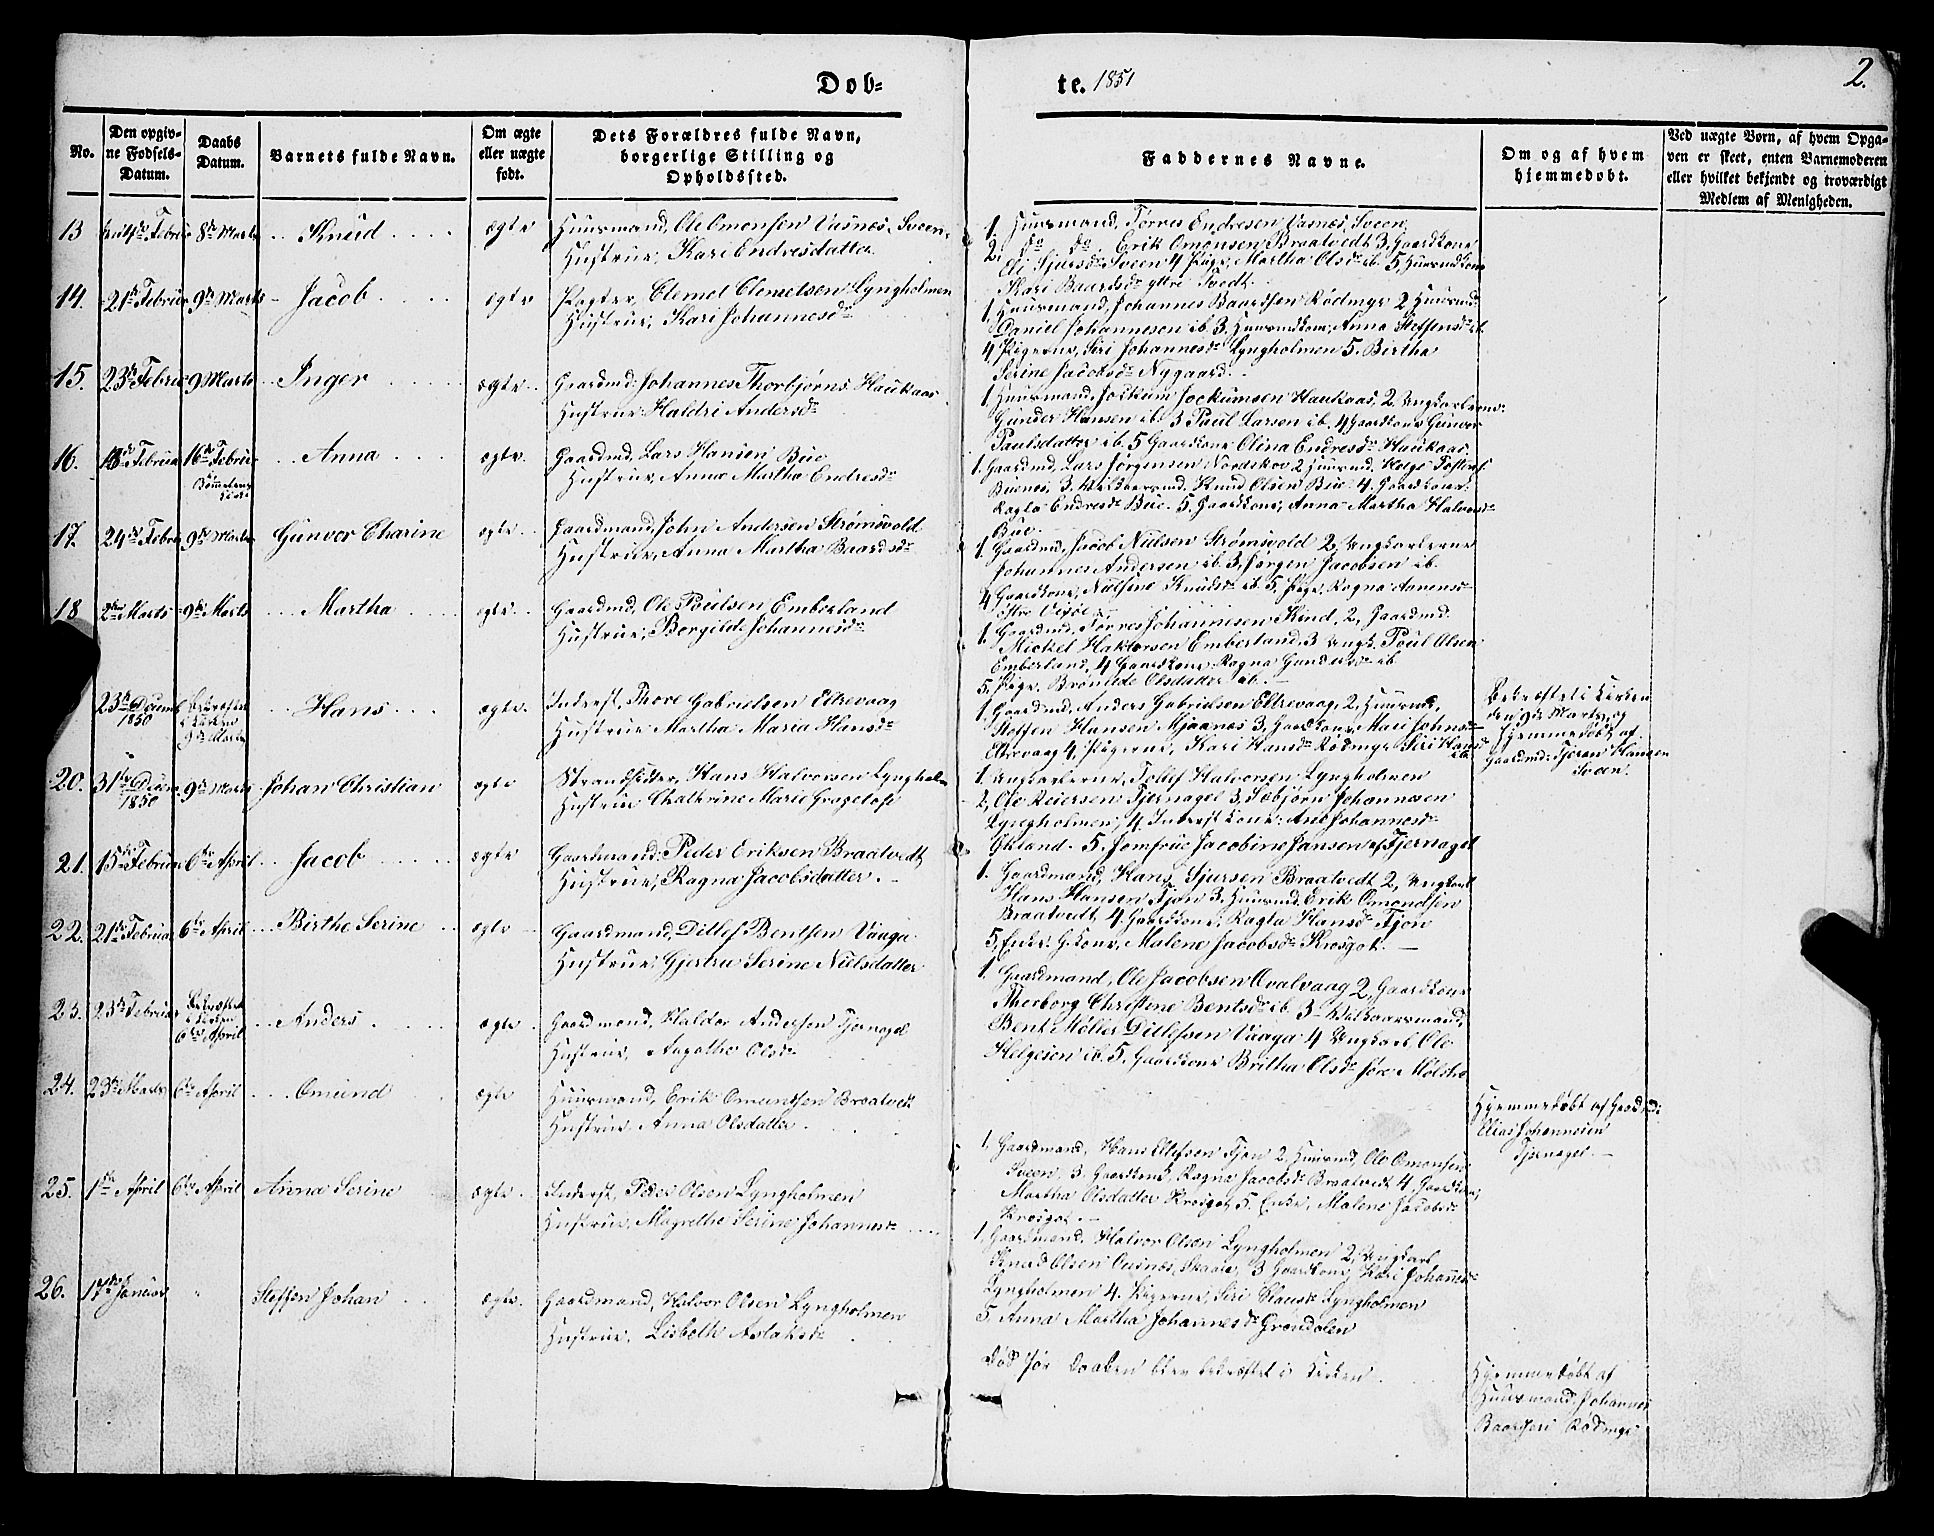 Døb-
te. 1851
2.
No.
Den opgiv-
ne Fødsels-
Datum.
Daabs
Datum.
Barnets fulde Navn.
Om ægte
eller uægte
født.
Dets Forældres fulde Navn,
borgerlige Stilling og
Opholdssted.
Faddernes Navne.
Om og af hvem
hjemmedøbt.
Ved uægte Børn, af hvem Opga-
ven er skeet, enten Barnemoderen
eller hvilket bekjendt og troværdigt
Medlem af Menigheden.
13 4de Februar 8de Marts Knud ægte Huusmand, Ole Omonsen Sveen
Hustrue, Kari Endresdatter
1. Huusmand, Tørres Endresen Sveen
2, do do Erik Omonsen Braatvedt 3, Gaardkone
Eli Sjursdr Sveen 4 Pige, Martha Olsdr ib. 5, Huusmdkone
Kari Baardsdr yttre Tvedt
14. 21de Februar 9de Marts Jacob ægte Clemet Clemetsen Lyngholmen
Hustrue, Kari Johannesdr
1, Huusmand, Johannes Baardsen Rødmyr 2 Huusmd
Daniel Johannesen ib 3. Huusmdkone, Anna Steffensdr ib.
4, Pigerne, Siri Johannesdr Lyngholmen 5. Birtha
Serine Jacobsdr Nygaard.
15. 23de Februar 9 Marts Inger ægte Gaardmd: Johannes Thorbjørns. Haukaas
Hustrue: Haldri Andersdr
1, Huusmand, Jockum Jockumsen Haukaas, 2, Ungkarlene
Gunder Hansen ib. 3 Paul Larsen ib. 4 Gaardkone Gunvor
Paulsdatter ib. 5 Gaardkone Olina Endresdr Haukaas
16. Februar 16de Februar Anna ægte Gaardmd, Lars Hansen Bue
Hustrue, Anna Martha Endresdr
1. Gaardmd, Lars Jørgensen Nordskov 2 Huusmd. Helge
Buenes, 3. Knud Olsen Bue 4, Gaardkone
Ragla Endresdr Bue. 5, Gaardkone, Anna Martha Halvorsdr
Bue
17. 24de Febr 9de Marts Gunvor Charine ægte Gaardmand, John Andersen Strømsvold
Hustrue, Anna Martha Baardsdr
1. Gaardmd, Jacob Nielsen Strømsvold 2, Ungkarlene
Johannes Andersen ib 3, Jørgen Jacobsen ib.
4 Gaardkone, Nielsine Knudsdr ib. 5, Pige, Ragna
18 2den Marts 9de Marts Martha ægte Gaardmd, Ole Poulsen Emberland
Hustrue, Borgilde Johannesdr
1. Gaardmd, Tørres Johannesen Kind, 2, Gaardmd.
Mickel Haktorsen Emberland, 3 Ungk. Poul Olsen
Emberland, 4 Gaardkone Ragna Gundersdr ib.
5, Pige, Olsdatter ib.
23de Decemb 1850 Bekræftet
i Kirken
9de Marts Hans ægte Inderst, Thore Gabrielsen Eltrevaag
Hustrue Martha Maria Hansdr
1, Gaardmd, Anders Gabrielsen Eltrevaag, 2, Huusmd,
Steffen Hansen Mjaanæs 3, Gaardkone Mari Johnsdr
Eltrevaag 4, Pigerne, Kari Hansdr Rødmyr Siri Hansdr
ib.
Bekræftet i Kirken
den 9de Marts, og
Hjemmedøbt af
Gaardmd: Tjeran Hansen
Sveen.
20. 31te Decem 1850 9de Marts Johan Christian ægte Strandsidder, Hans Halvorsen Lyngholm
Hustrue Chathrine Marie
1. Ungkarlene, Tollef Halvorsen Lyngholmen
2, Ole Reiersen Tjernagel 3, Sæbjørn Johannesen
Lyngholmen, 4. Inderst kone: Ane Johannesdr
Økland. 5. Jomfrue Jacobine Jansen Tjernagel
21. 15de Februar 6te April Jacob ægte Gaardmand: Peder Eriksen Braatvedt
Hustrue, Ragna Jacobsdatter.
1. Gaardmand, Hans Sjursen Braatvedt 2, Ungkarl
Hans Hansen Tjøn 3, Huusmd, Erik Omondsen
Braatvedt, 4. Gaardkone, Ragla Hansdr Tjøn
5, Enke, G.kone, Malene Jacobsdr Krosgot.
22. 21de Februar 6te April Birthe Serine ægte Gaardmand, Ditlef Bentsen Vaaga.
Hustrue: Gjertru Serine Nielsdatter
1, Gaardmand, Ole Jacobsen Qvalvaag 2, Gaardkone
Thorborg Christine Bentsdr ib. 3 Vilkaarsmand,
Bent Møller Ditlefsen Vaaga 4 Ungkarl, Ole
Helgesen ib. 5. Gaardkone Britha Olsdr
23. 23de Februar Bekræftet
i Kirken
6te April Anders ægte Gaardmand, Haldor Andersen Tjernagel
Hustrue, Aagathe Olsdr
Hjemmedøbt af Gaardmd:
Elias Johannesen
Tjernagel.
24. 23de Marts 6te April Omund ægte Huusmand, Erik Omundsen Braatvedt
Hustrue, Anna Olsdatter
1, Gaardmand, Hans Ellefsen Tjøn 2, Huusmd, Ole Omonsen
Sveen, 3. Gaardkone, Ragna Jacobsdr Braatvedt 4 Gaardkone,
Martha Olsdatter Krosgot, 5. Enke, Malene Jacobsdr
Krosgot.
25. 1ste April 6te April Anna Serine ægte Inderst, Peder Olsen Lyngholmen
Hustrue, Magrethe Serine Johannesdr
1, Gaardmand, Halvor Olsen Lyngholmen 2, Ungkarl
Knud Olsen 3 Gaardkone, Kari Johannesdr
Lyngholmen 4. Pigerne, Siri Lyngholmen
5. Anna Martha Johannesdr Grøndalen
26. 17de Januar " Steffen Johan ægte Gaardmand, Halvor Olsen Lyngholmen
Hustrue, Lisbeth Aslaksdr
Død før Daaben blev bekræftet i Kirken.
Hjemmedøbt af
Huusmand, Johannes
Baardsen Rødmyr